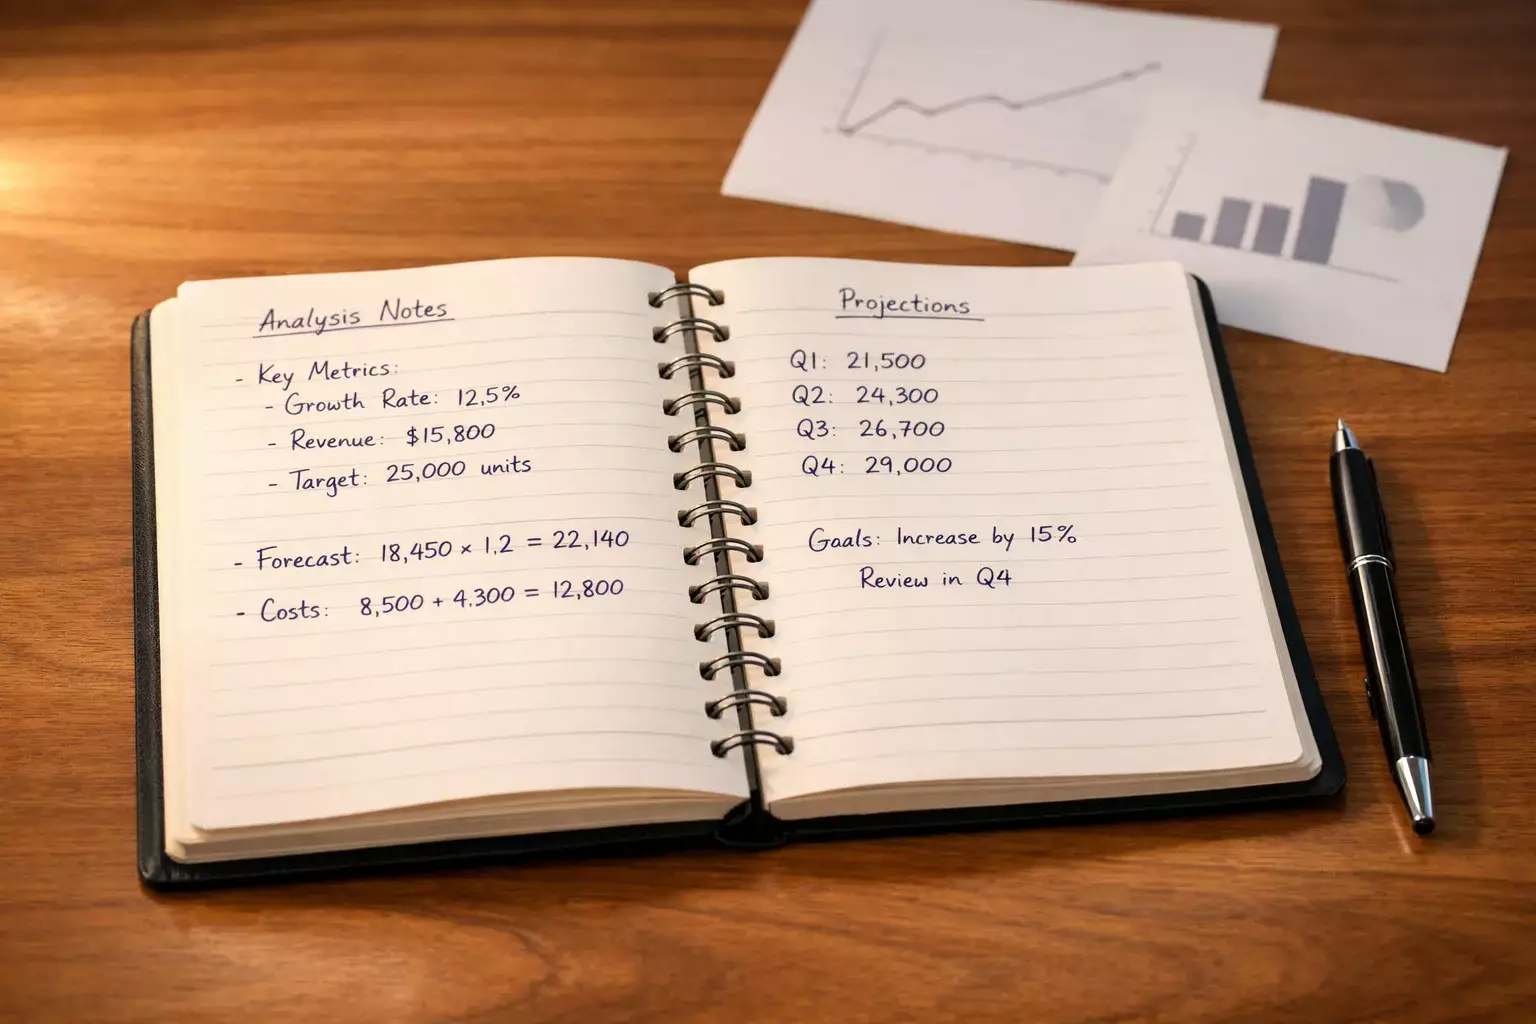 Analysis Notes
- Key Metrics:
- Growth Rate: 12,5%
- Revenue: $15,800
- Target: 25,000 units
- Forecast: 18,450 × 1.2 = 22,140
- Costs: 8,500 + 4.300 = 12,800
Projections
Q1: 21,500
Q2: 24,300
Q3: 26,700
Q4: 29,000
Goals: Increase by 15%
Review in Q4